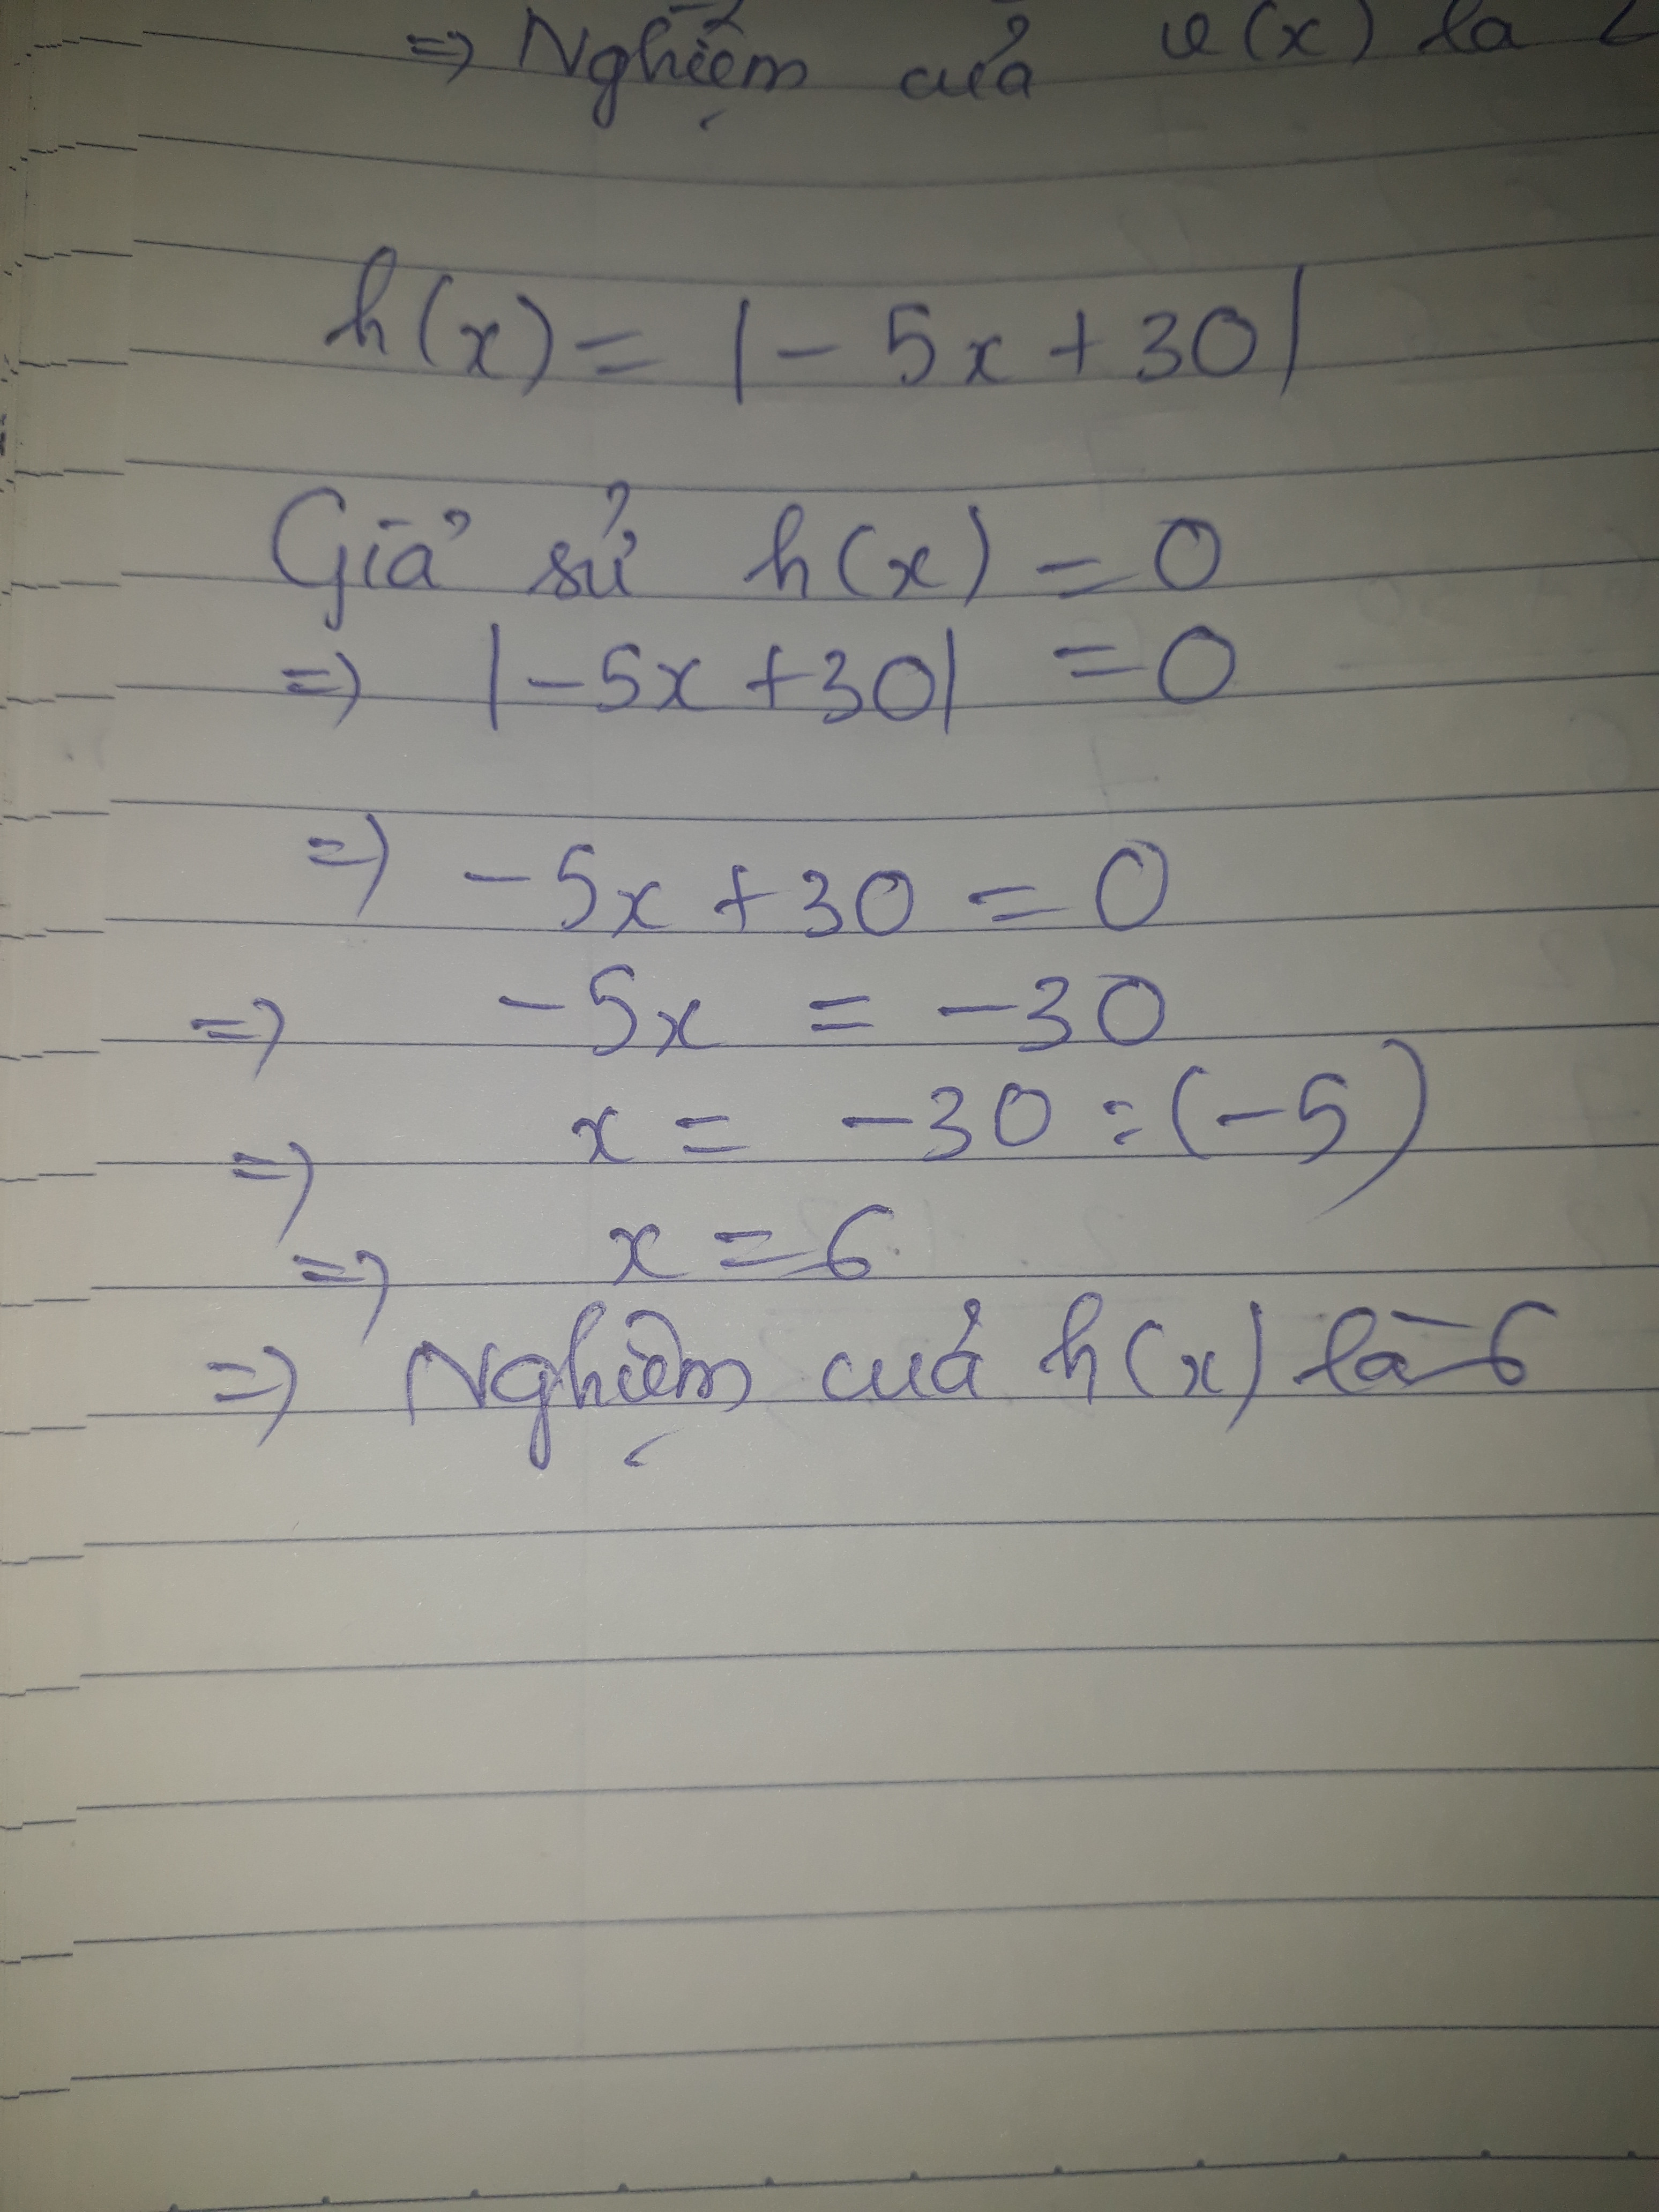 => Nghiệm của v(x) là
h(x) = |-5x + 30|
Giả sử h(x) = 0
=> |-5x + 30| = 0
=> -5x + 30 = 0
=> -5x = -30
=> x = -30 : (-5)
=> x = 6
=> Nghiệm của h(x) là 6